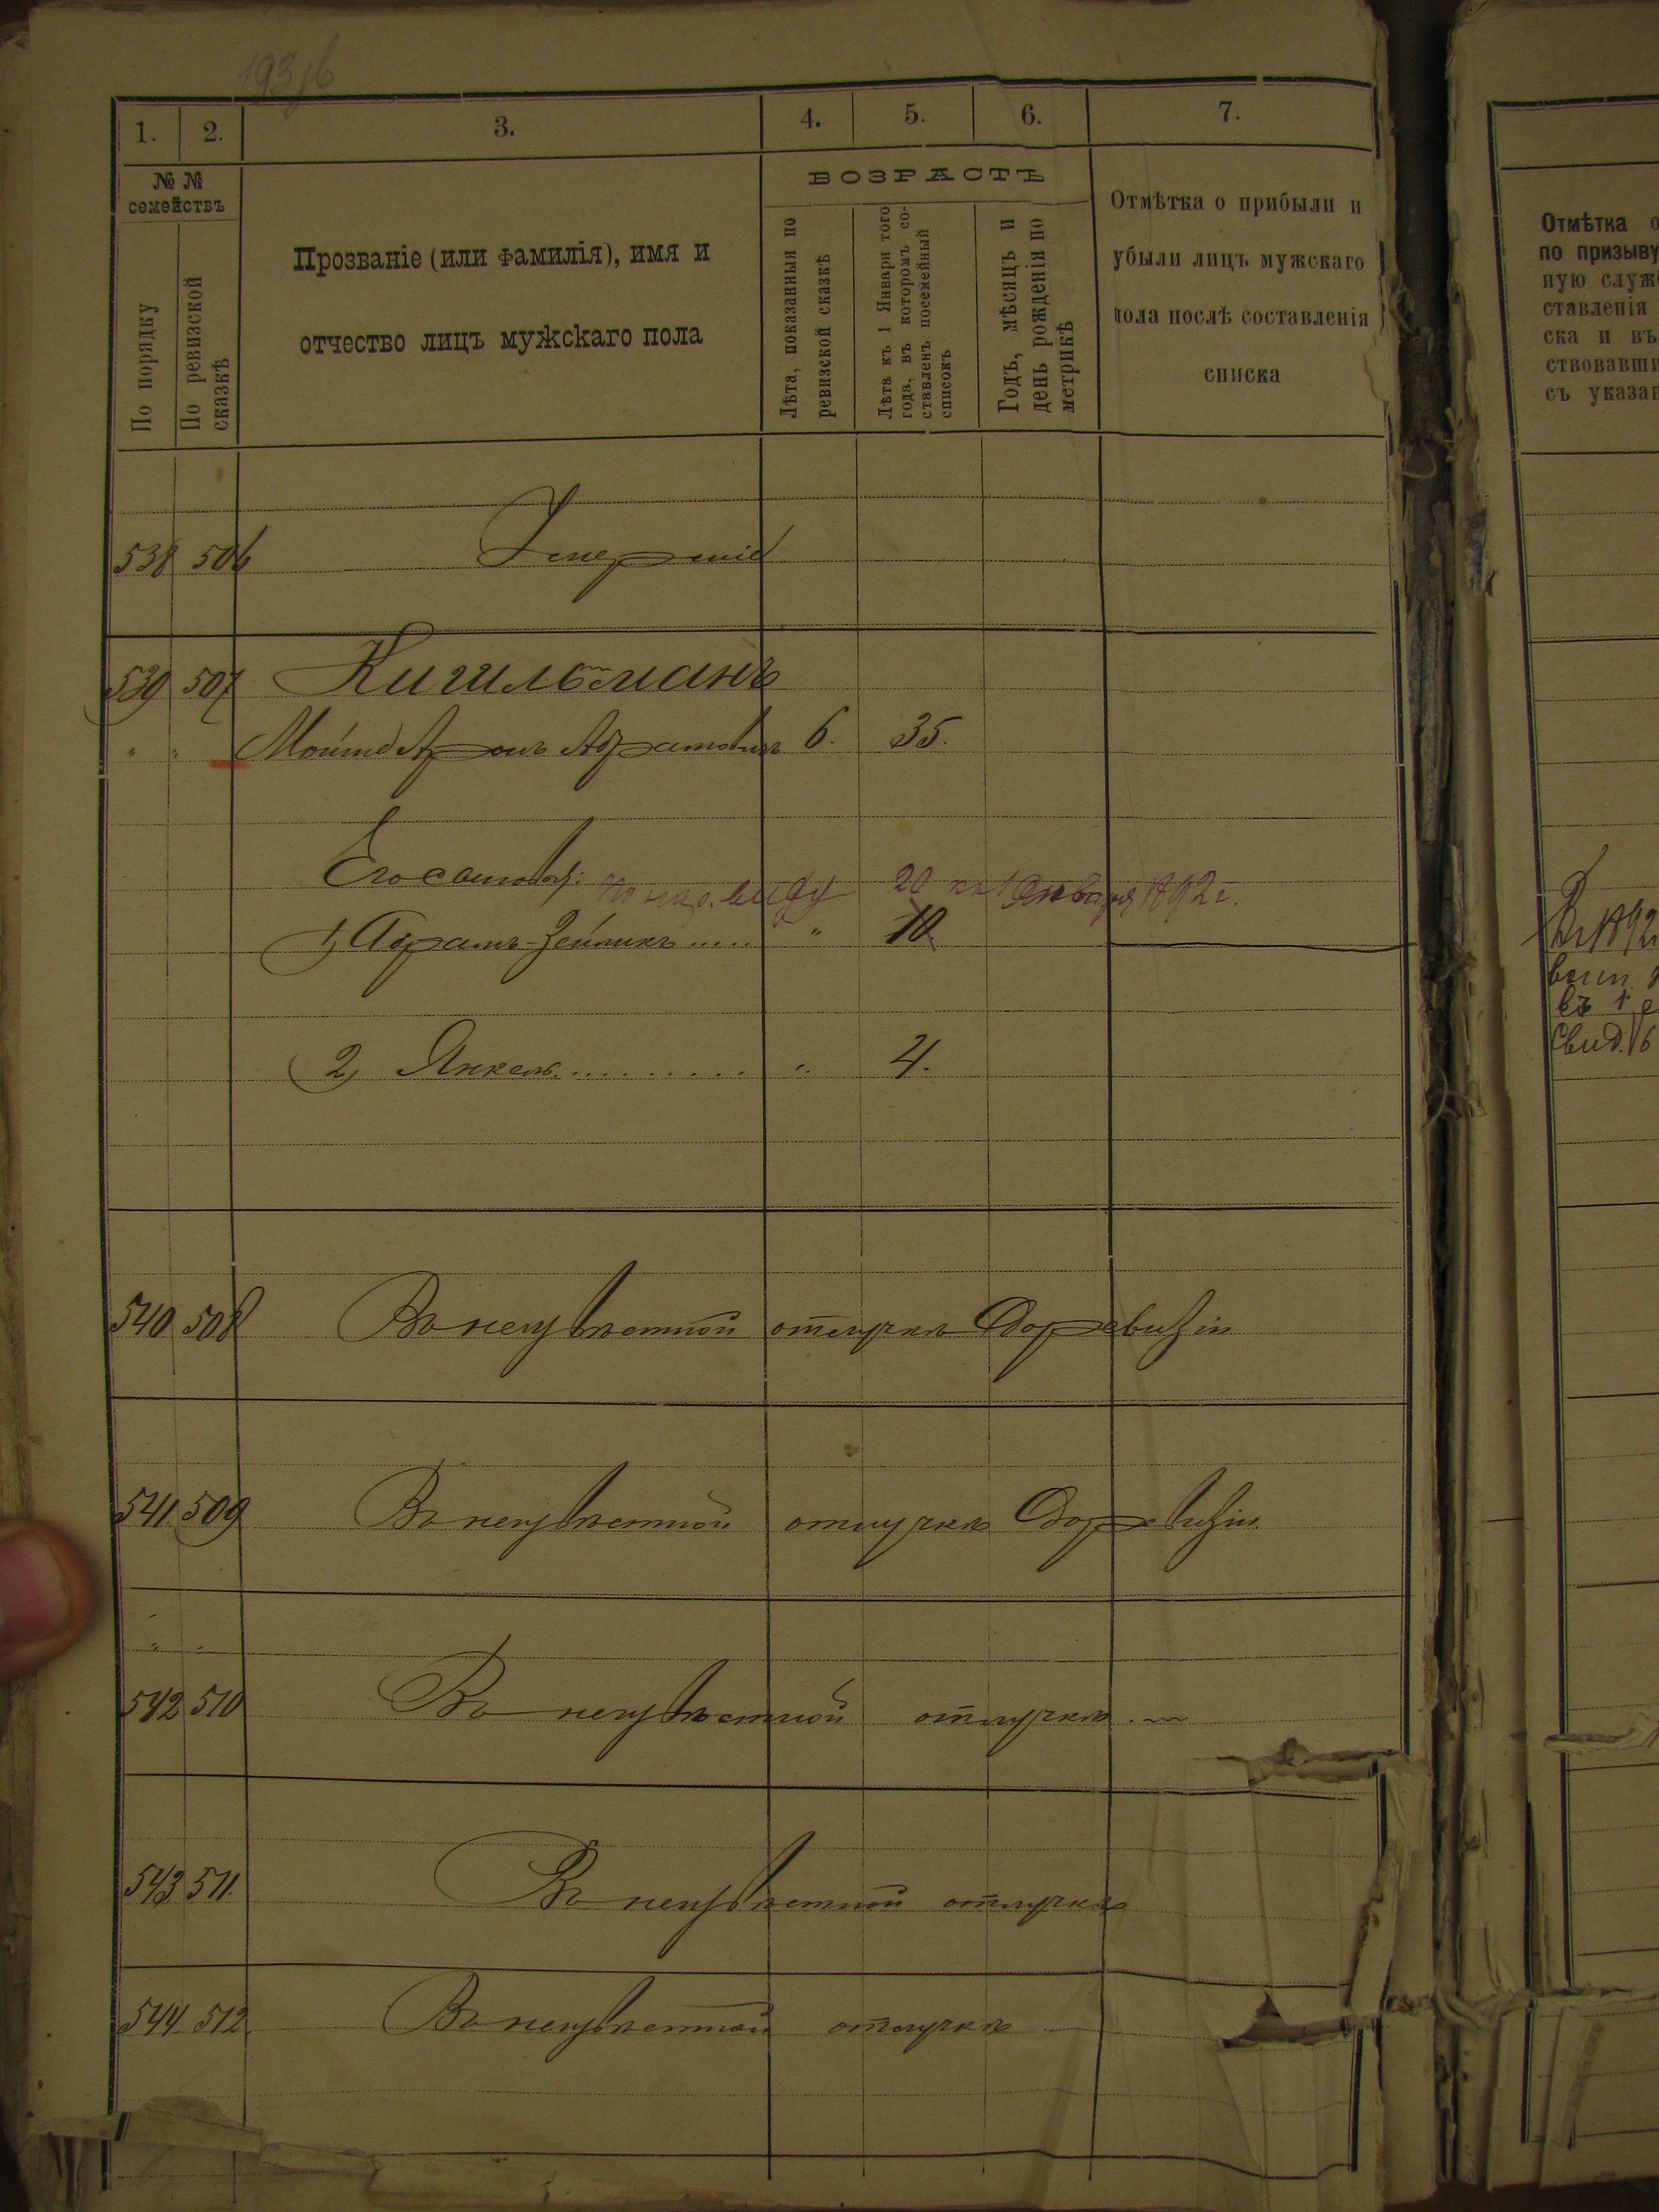 193об
1. 2. 3. 4. 5. 6. 7.
№ № семействъ
По порядку
По ревизской сказкѣ
Прозваніе (или фамилія), имя и
отчество лицъ мужскаго пола
ВОЗРАСТЪ
Лѣта, показанныя по
ревизской сказкѣ
Лѣта къ 1 Января того
года, въ которомъ со-
ставленъ посемейный
списокъ
Годъ, мѣсяцъ и
день рожденія по
метрикѣ
Отмѣтка о прибыли и
убыли лицъ мужскаго
пола послѣ составленія
списка
538 506 Умершіе
539 507 Кигильманъ
" " Мойше Аронъ Абрамовичъ 6. 35.
Его сыновья:
по нар. виду 20 къ 1 Января 1892 г.
1, Абрамъ-Зейликъ ..... " 10
2, Янкель ......... " 4.
540 508 Въ неизвѣстной отлучкѣ до ревизіи
541 509 Въ неизвѣстной отлучкѣ до ревизіи
" "
542 510 Въ неизвѣстной отлучкѣ
543 511. Въ неизвѣстной отлучкѣ
544 512. Въ неизвѣстной отлучкѣ
Отмѣтка о
по призыву
ную служ
ставленія
ска и въ
ствовавши
съ указан
Въ 1892
воин.
въ 1
Свид. 16